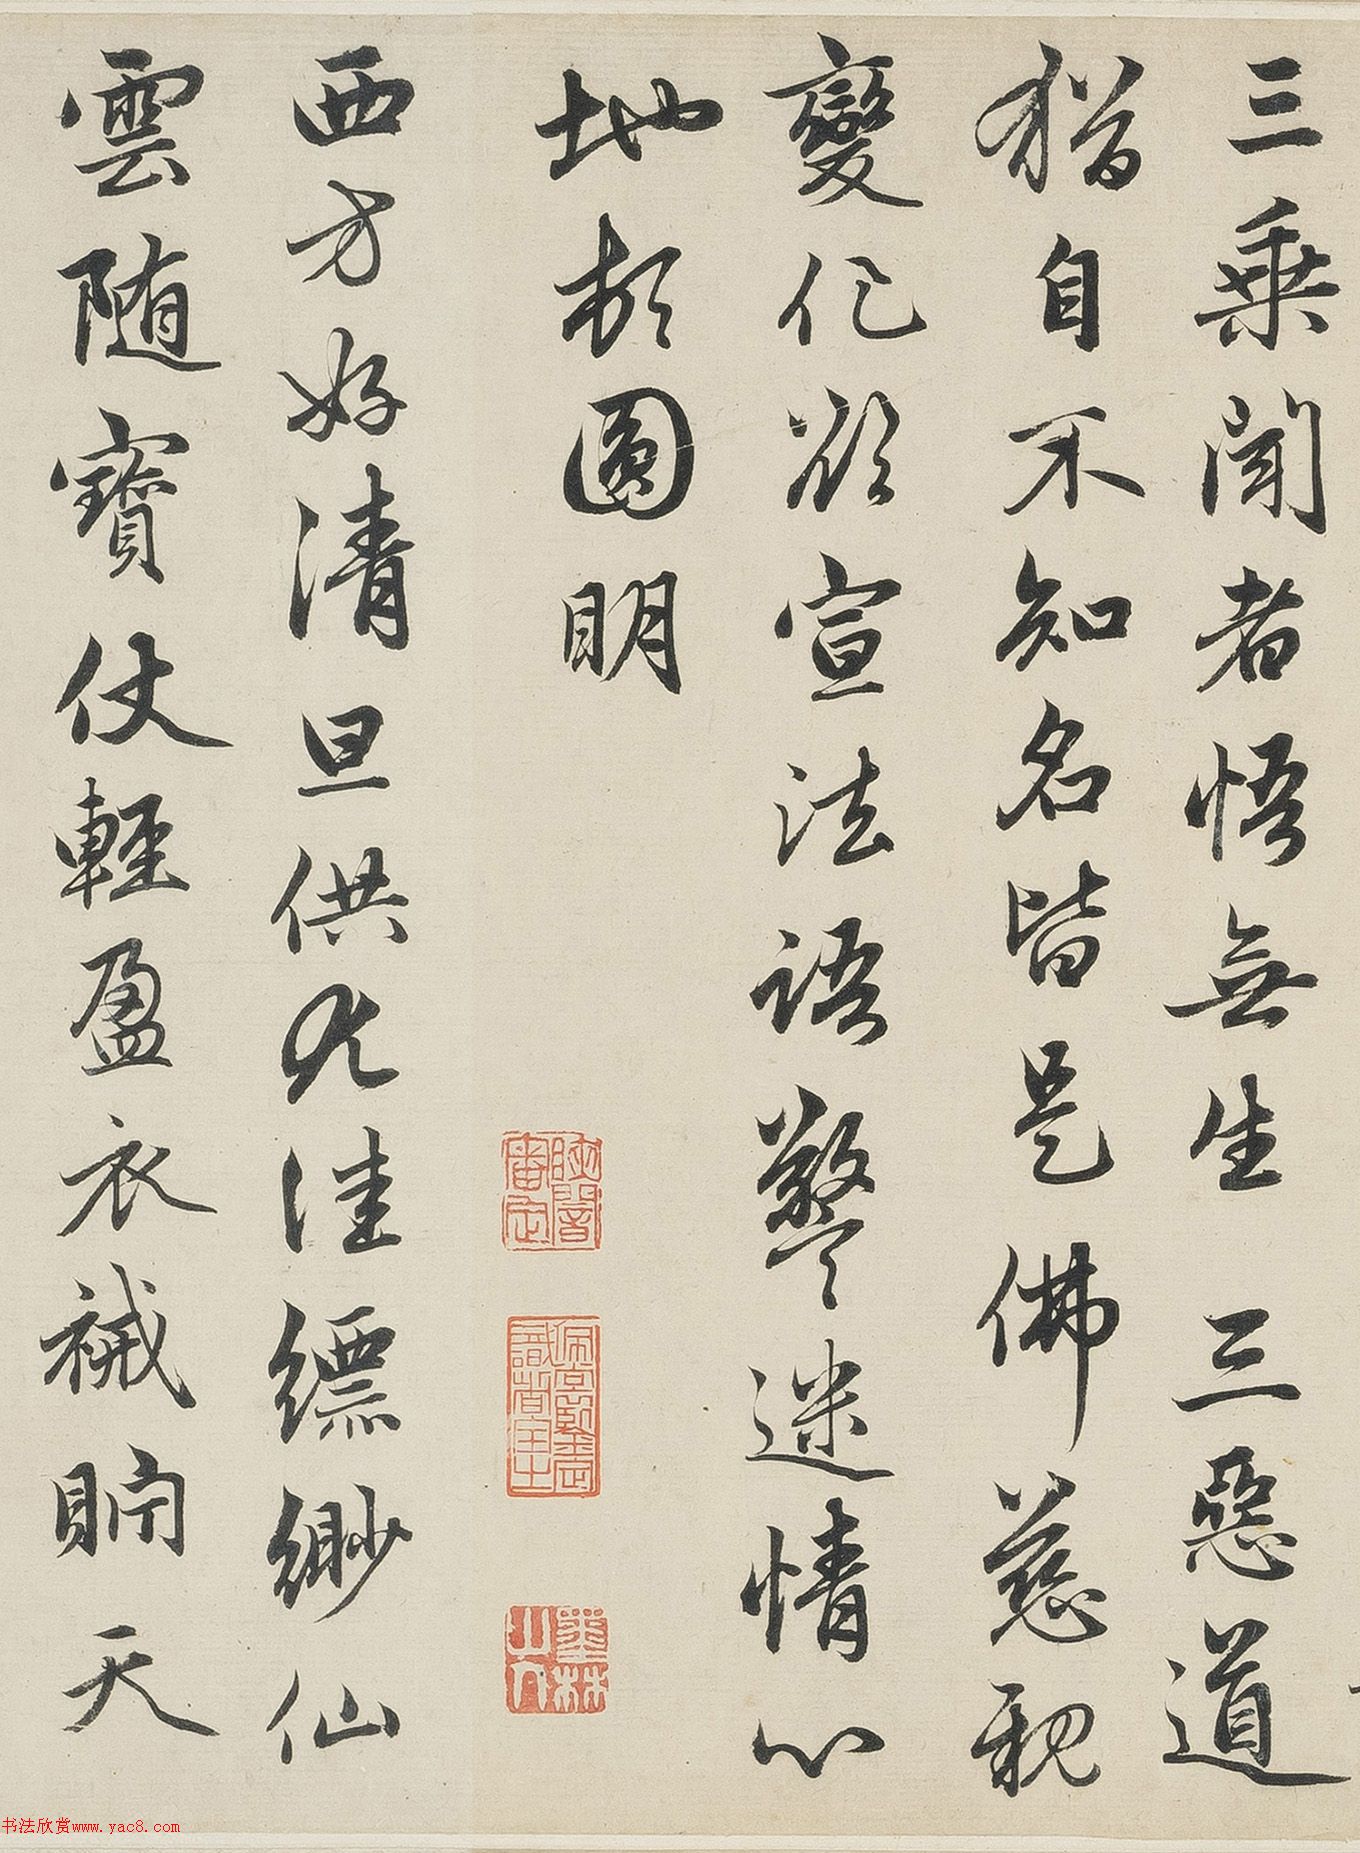 三乘聞者悟無生三惡道
猶自不知名皆是佛慈親
變化欲宣法語警迷情心
地頓圓明
西方好清旦供尤佳縹緲仙
雲随寶仗輕盈衣裓貯天
书法欣赏www.yac8.com